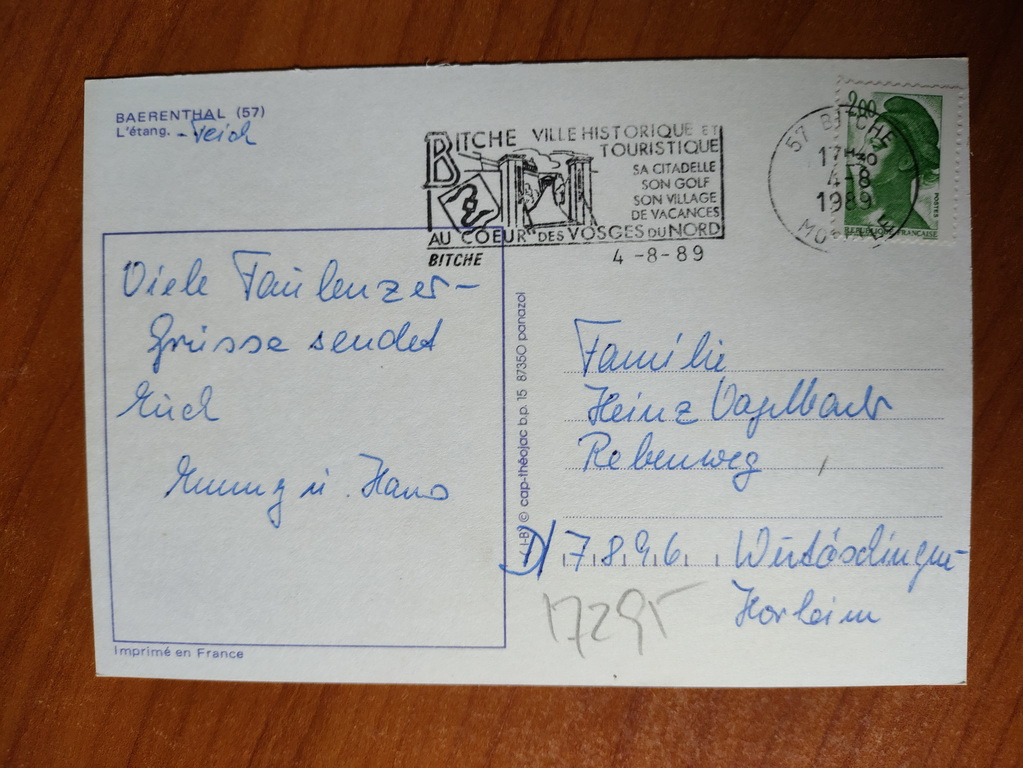 BAERENTHAL (57)
L'étang. - Teich
BITCHE VILLE HISTORIQUE ET
TOURISTIQUE
SA CITADELLE
SON GOLF
SON VILLAGE
DE VACANCES
AU COEUR DES VOSGES DU NORD
BITCHE 4-8-89
57 BITCHE
17H30
4-8
1989
MOSELLE
2,00
POSTES
REPUBLIQUE FRANÇAISE
Viele Faulenzer-
Grüsse sendet
Euch
Emmy u. Hans
Imprimé en France
I-B © cap-théojac b.p. 15 87350 panazol
Familie
Heinz
Rebenweg
D/ 7896 Wutöschingen-
Horheim
17295